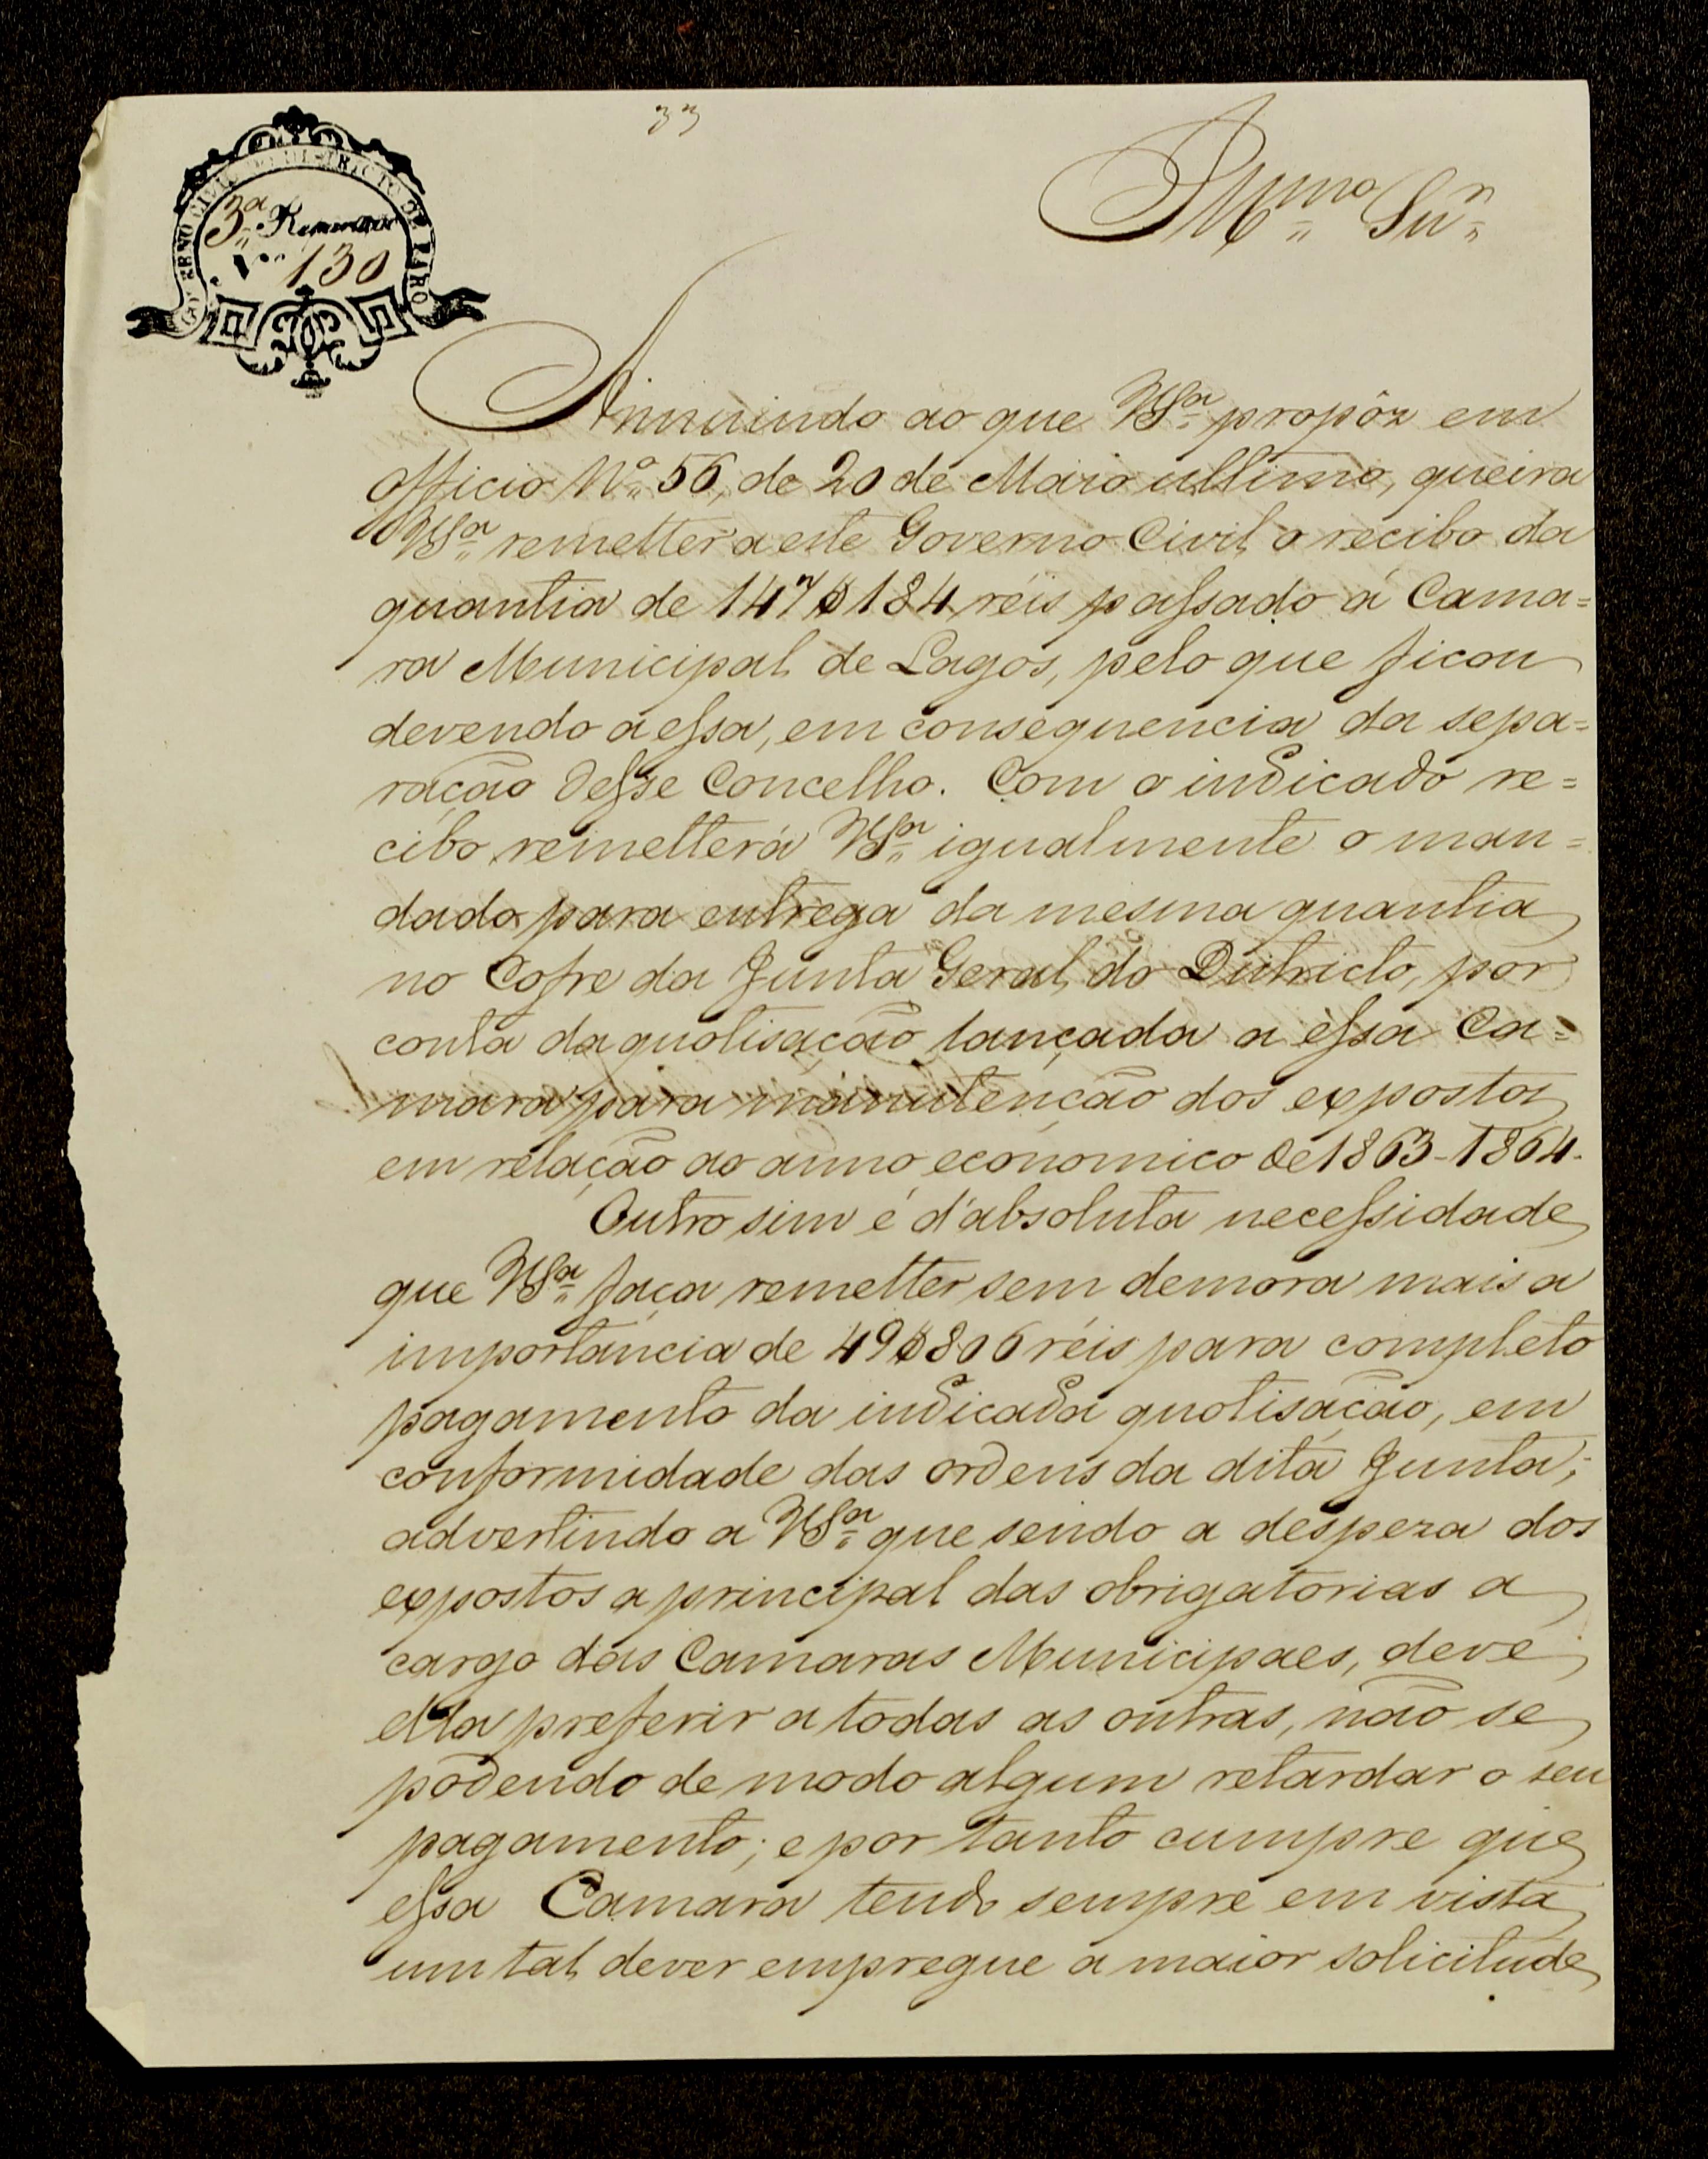 33
GOVERNO CIVIL DO DISTRICTO DE FARO
3.ª Repartição
N.º 130
Illmo Snr
Annuindo ao que VSª propôz em
officio Nº 56, de 20 de Maio ultimo, queira
VSª remetter a este Governo Civil o recibo da
quantia de 147$184 réis passado á Cama=
ra Municipal de Lagos, pelo que ficou
devendo a essa, em consequencia da sepa=
ração desse Concelho. Com o indicado re=
cibo remetterá VSª igualmente o man=
dado para entrega da mesma quantia
no Cofre da Junta Geral do Districto, por
conta da quotisação lançada a essa Ca=
mara para manutenção dos expostos
em relação ao anno economico de 1863-1864.
Outro sim é d'absoluta necessidade
que VSª faça remetter sem demora mais a
importancia de 49$806 réis para completo
pagamento da indicada quotisação, em
conformidade das ordens da dita Junta;
advertindo a VSª que sendo a despeza dos
expostos a principal das obrigatorias a
cargo das Camaras Municipaes, deve
ella preferir a todas as outras, não se
podendo de modo algum retardar o seu
pagamento; e por tanto cumpre que
essa Camara tendo sempre em vista
um tal dever empregue a maior solicitude